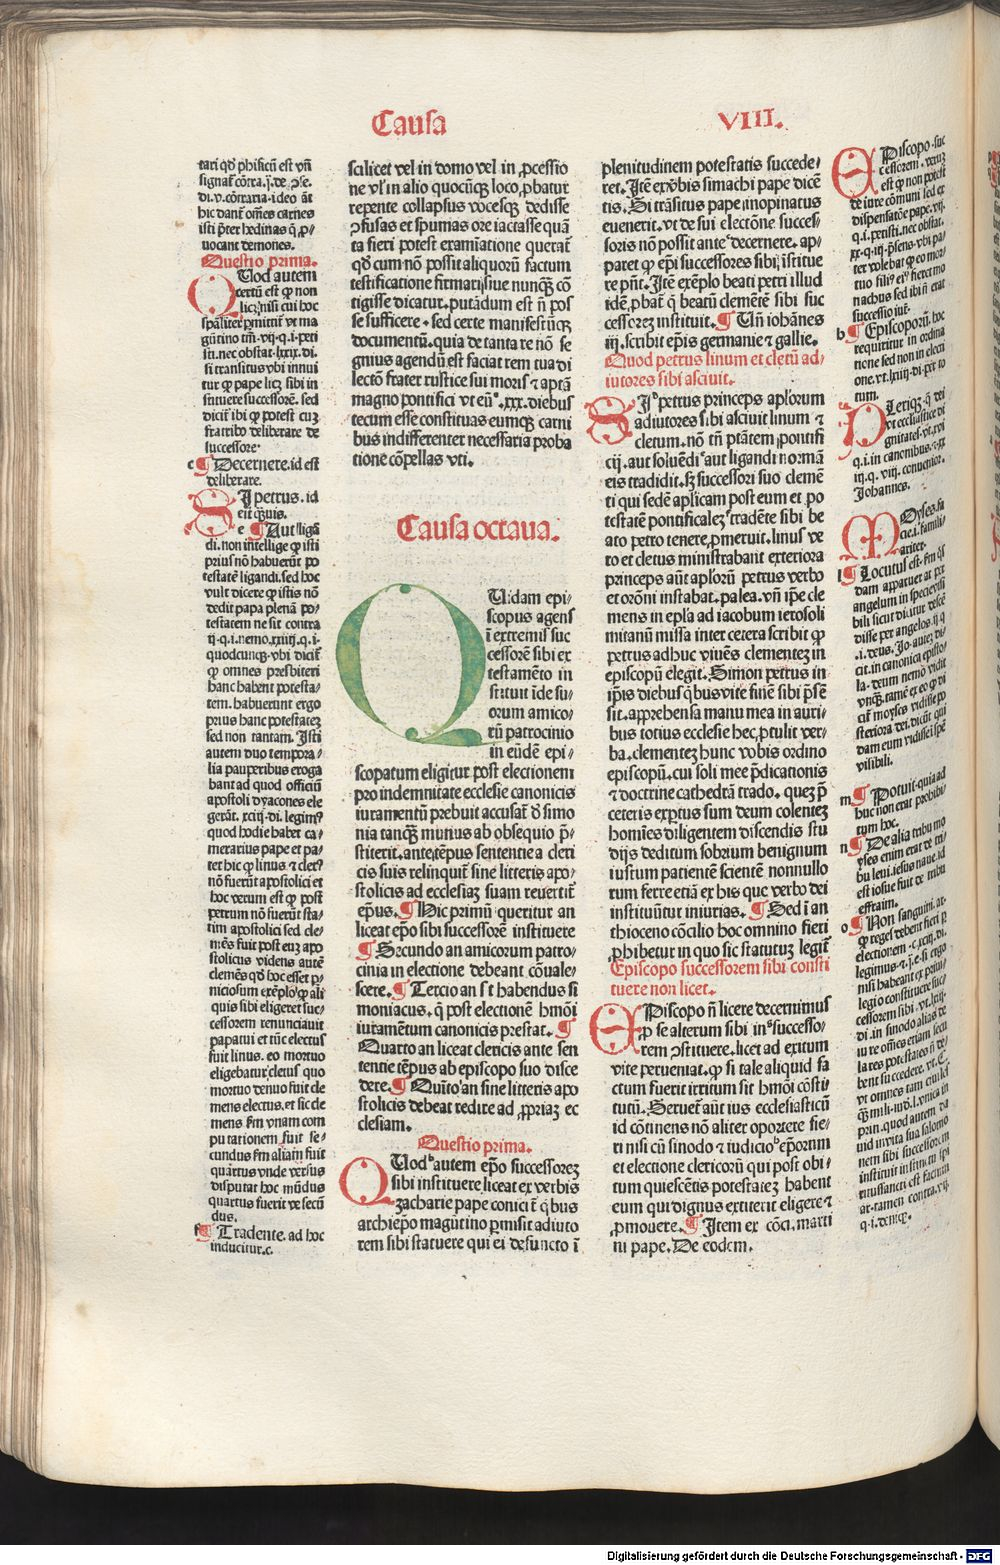 Causa
VIII.
tari qď phificū est vñ
signaī cōtra.ij.de.ꝯse.
di.v.cōtraria.ideo āt
hic danť omēs carnes
isti p̄ter hedinas q̄ ꝓ-
uocant demones.
Questio prima.
QUod autem
certū est ꝙ non
licꝫ nisi cui hoc
spāliter ꝑmittit̄ vt ma
gūtino
sti.nec obstat.lxxix.di.
si transitus vbi innui
tur ꝙ pape licꝫ sibi in
stituere successorē. sed
dicit̄ ibi ꝙ potest cuꝫ
fratribo deliberare de
successore
c ¶ Decernere.id est
deliberare.
SI petrus.id
est quis.
e ¶ Aut ligā
di.non intellige ꝙ isti
prius nō habuerūt po
testatē ligandi.sed hoc
vult dicere ꝙ istis nō
dedit papa plenā po-
testatem ne sit contra
ij.q.i.nemo.xxiiij.q.i.
quodcunqꝫ.vbi diciť
ꝙ omnes presbiteri
hanc habent potesta-
tem.habuerunt ergo
prius hanc potestateꝫ
sed non tantam. Isti
autem duo tempora-
lia pauperibus eroga
bant ad quod officiū
apostoli dyacones ele
gerāt.xciij.di.legim?
quod hodie habet ca-
merarius pape et pa-
tet hic ꝙ linus ⁊ clet?
nō fuerūt apostolici et
hoc verum est ꝙ post
petrum nō fuerūt sta-
tim apostolici sed cle-
mēs fuit post euꝫ apo
stolicus videns autē
clemēs qď hoc esset ꝑ-
niciosum exēplo ꝙ ali
quis sibi eligeret suc-
cessorem renunciauit
papatui et tūc electus
fuit linus. eo mortuo
eligebatur cletus quo
mortuo denuo fuit cle
mens electus.et sic cle
mens fm vnam com
pu tationem fuit se-
cundus fm aliam fuit
quartus vnde versus
disputat hoc mūdus
quartus fuerit ve secū
dus.
f ¶ Tradente.ad hoc
inducitur.c.
scilicet vel in domo vel in ꝓcessio
ne vl' in alio quocūqꝫ loco,ꝓbatur
repente collapsus vocesqꝫ dedisse
ꝯfusas et spumas ore iactasse quā
ta fieri potest examīatione querať
qď cum nō possit aliquorū factum
testificatione firmari,siue nunqꝫ cō
tigisse dicatur.putādum est ñ pos
se sufficere.sed certe manifestūqꝫ
documentū.quia de tanta re nō se
gnius agendū est faciat rem tua di
lectō frater rustice sui moris ⁊ aptā
magno pontifici vt eū.xxx.diebus
tecum esse constituas eumqꝫ carni
bus indifferenter necessaria proba
tione cōpellas vti.
Causa octaua.
QUidam epi-
scopus agens
ī extremis suc
cessorē sibi ex
testamēto in
stituit īde su-
orum amico-
rū patrocinio
in eūdē epi-
scopatum eligitur post electionem
pro indemnitate ecclesie canonicis
iuramentū prebuit accusať ð simo
nia tanqꝫ munus ab obsequio p̄-
stiterit.ante tēpus sententie a cleri
cis suis relinquiť sine litteris apo-
stolicis ad ecclesiaꝫ suam reuertiť
ep̄us. ¶ Hic primū queritur an
liceat ep̄o sibi successorē instituere
¶ Secundo an amicorum patro-
cinia in electione debeant cōuale-
scere. ¶ Tercio an sit habendus si
moniacus. q̄ post electionē hmōi
iuramētum canonicis prestat. ¶
Quarto an liceat clericis ante sen
tentie tēpus ab episcopo suo disce
dere. ¶ Quīto an sine litteris apo
stolicis debeat redire ad ꝓpriaꝫ ec
clesiam.
Questio prima.
QUodᵇ autem ep̄o successoreꝫ
sibi instituere liceat ex verbis
zacharie pape conicit̄ q̄bus
archiep̄o magūtino ꝑmisit adiuto
rem sibi statuere qui ei defuncto ī
plenitudinem potestatis succede-
ret. Itē ex ꝟbis simachi pape dicē
tis. Si trāsitus pape inopinatus
euenerit. vt de sui electōne succes-
soris nō possit ante decernere. ap-
paret ꝙ ep̄i successores sibi īstitue
re pn̄t. Itē exēplo beati petri illud
idē,ꝓbať q̄ beatū clemētē sibi suc
cessoreꝫ instituit. ¶ Uñ iohānes
iij.scribit ep̄is germanie ⁊ gallie.
Quod petrus linum et cletū ad-
iutores sibi asciuit.
SIᵇ petrus princeps aplorum
adiutores sibi asciuit linum ⁊
cletum.nō tñ ptātem pontifi
cij.aut soluēdi aut ligandi normā
eis tradidit. sꝫ successori suo clemē
ti qui sedē aplicam post eum et po
testatē pontificaleꝫ tradēte sibi be
ato petro tenere,ꝑmeruit. linus ve
ro et cletus ministrabant exteriora
princeps aūt aplorū petrus verbo
et orōni instabat. palea. vñ ip̄e cle
mens in epl'a ad iacobum ierosoli
mitanū missa inter cetera scribit ꝙ
petrus adhuc viuēs clementeꝫ in
episcopū elegit. Simon petrus in
ip̄is diebus q̄bus vite finē sibi p̄sē
sit.apprehensa manu mea in auri-
bus totius ecclesie hec,ꝓtulit ver-
ba. clementeꝫ hunc vobis ordino
episcopū.cui soli mee p̄dicationis
⁊ doctrine cathedrā trado. queꝫ p̄
ceteris exp̄tus sum deum colenteꝫ
homiēs diligentem discendis stu
dijs deditum sobrium benignum
iustum patientē scientē nonnullo
rum ferre etiā ex his que verbo dei
instituūtur iniurias. ¶ Sed ī an
thioceno cōcilio hoc omnino fieri
ꝓhibetur in quo sic statutuꝫ legiť
Episcopo successorem sibi consti
tuere non licet.
EPiscopo ñ licere decernimus
ꝑ se alterum sibi in successo-
rem ꝯstituere.licet ad exitum
vite perueniat.ꝙ si tale aliquid fa
ctum fuerit irritum sit hmōi cōsti-
tutū. Serueť aūt ius ecclesiasticū
id cōtinens nō aliter oportere fie-
ri nisi cū sinodo ⁊ iudicioᵇ ep̄orum
et electione clericorū qui post obi-
tum quiescētis potestateꝫ habent
eum qui dignus extiterit eligere ⁊
ꝓmouere. ¶ Item ex cōca.marti
ni pape. De eodem.
EPiscopo.suc
cessorem.verum
est ꝙ non potest
de iure cōmuni sed ex
dispensatōe pape.vij.
q.i.petisti.nec obstat.
b ¶ Episcoporū.hoc
requiritur in ordina
tione sed non in electi
one.vt.lxiiij.di.
tum.
q.i.in canonibus.
Iohannes.
MOyses.fa
cie.i.famili
ariter.
l ¶ Locutus est.fm qs
dam apparuet ar pre
angelum in specie visi
bili sicut dicitur descē
disse per angelos.
.i.deus.Io.autē di
cit.in canonica episto-
la.deum nemo vidit
vnqꝫ.tamē ex eo ꝙ di
cit moyses vidisse po
steriora dei.dicūt qui
dam eum vidisse ī spē
visibili.
m ¶ Potuit.quia ad
huc non erat prohibi-
tum hoc.
n ¶ De alia tribu mo
yses enim erat de tri-
bu leui.iesus naue.id
est iosue fuit de tribu
effraim.
o ¶ Non sanguini.ar.
ꝙ regel debent fieri ꝑ
electionem.
legimus.
nisi habeant ex priui-
legio constituere suc-
cessorem sibi.
di.in sinodo alias de
iure omēs etiam secu
lares potestates ñ de-
bent succedere.